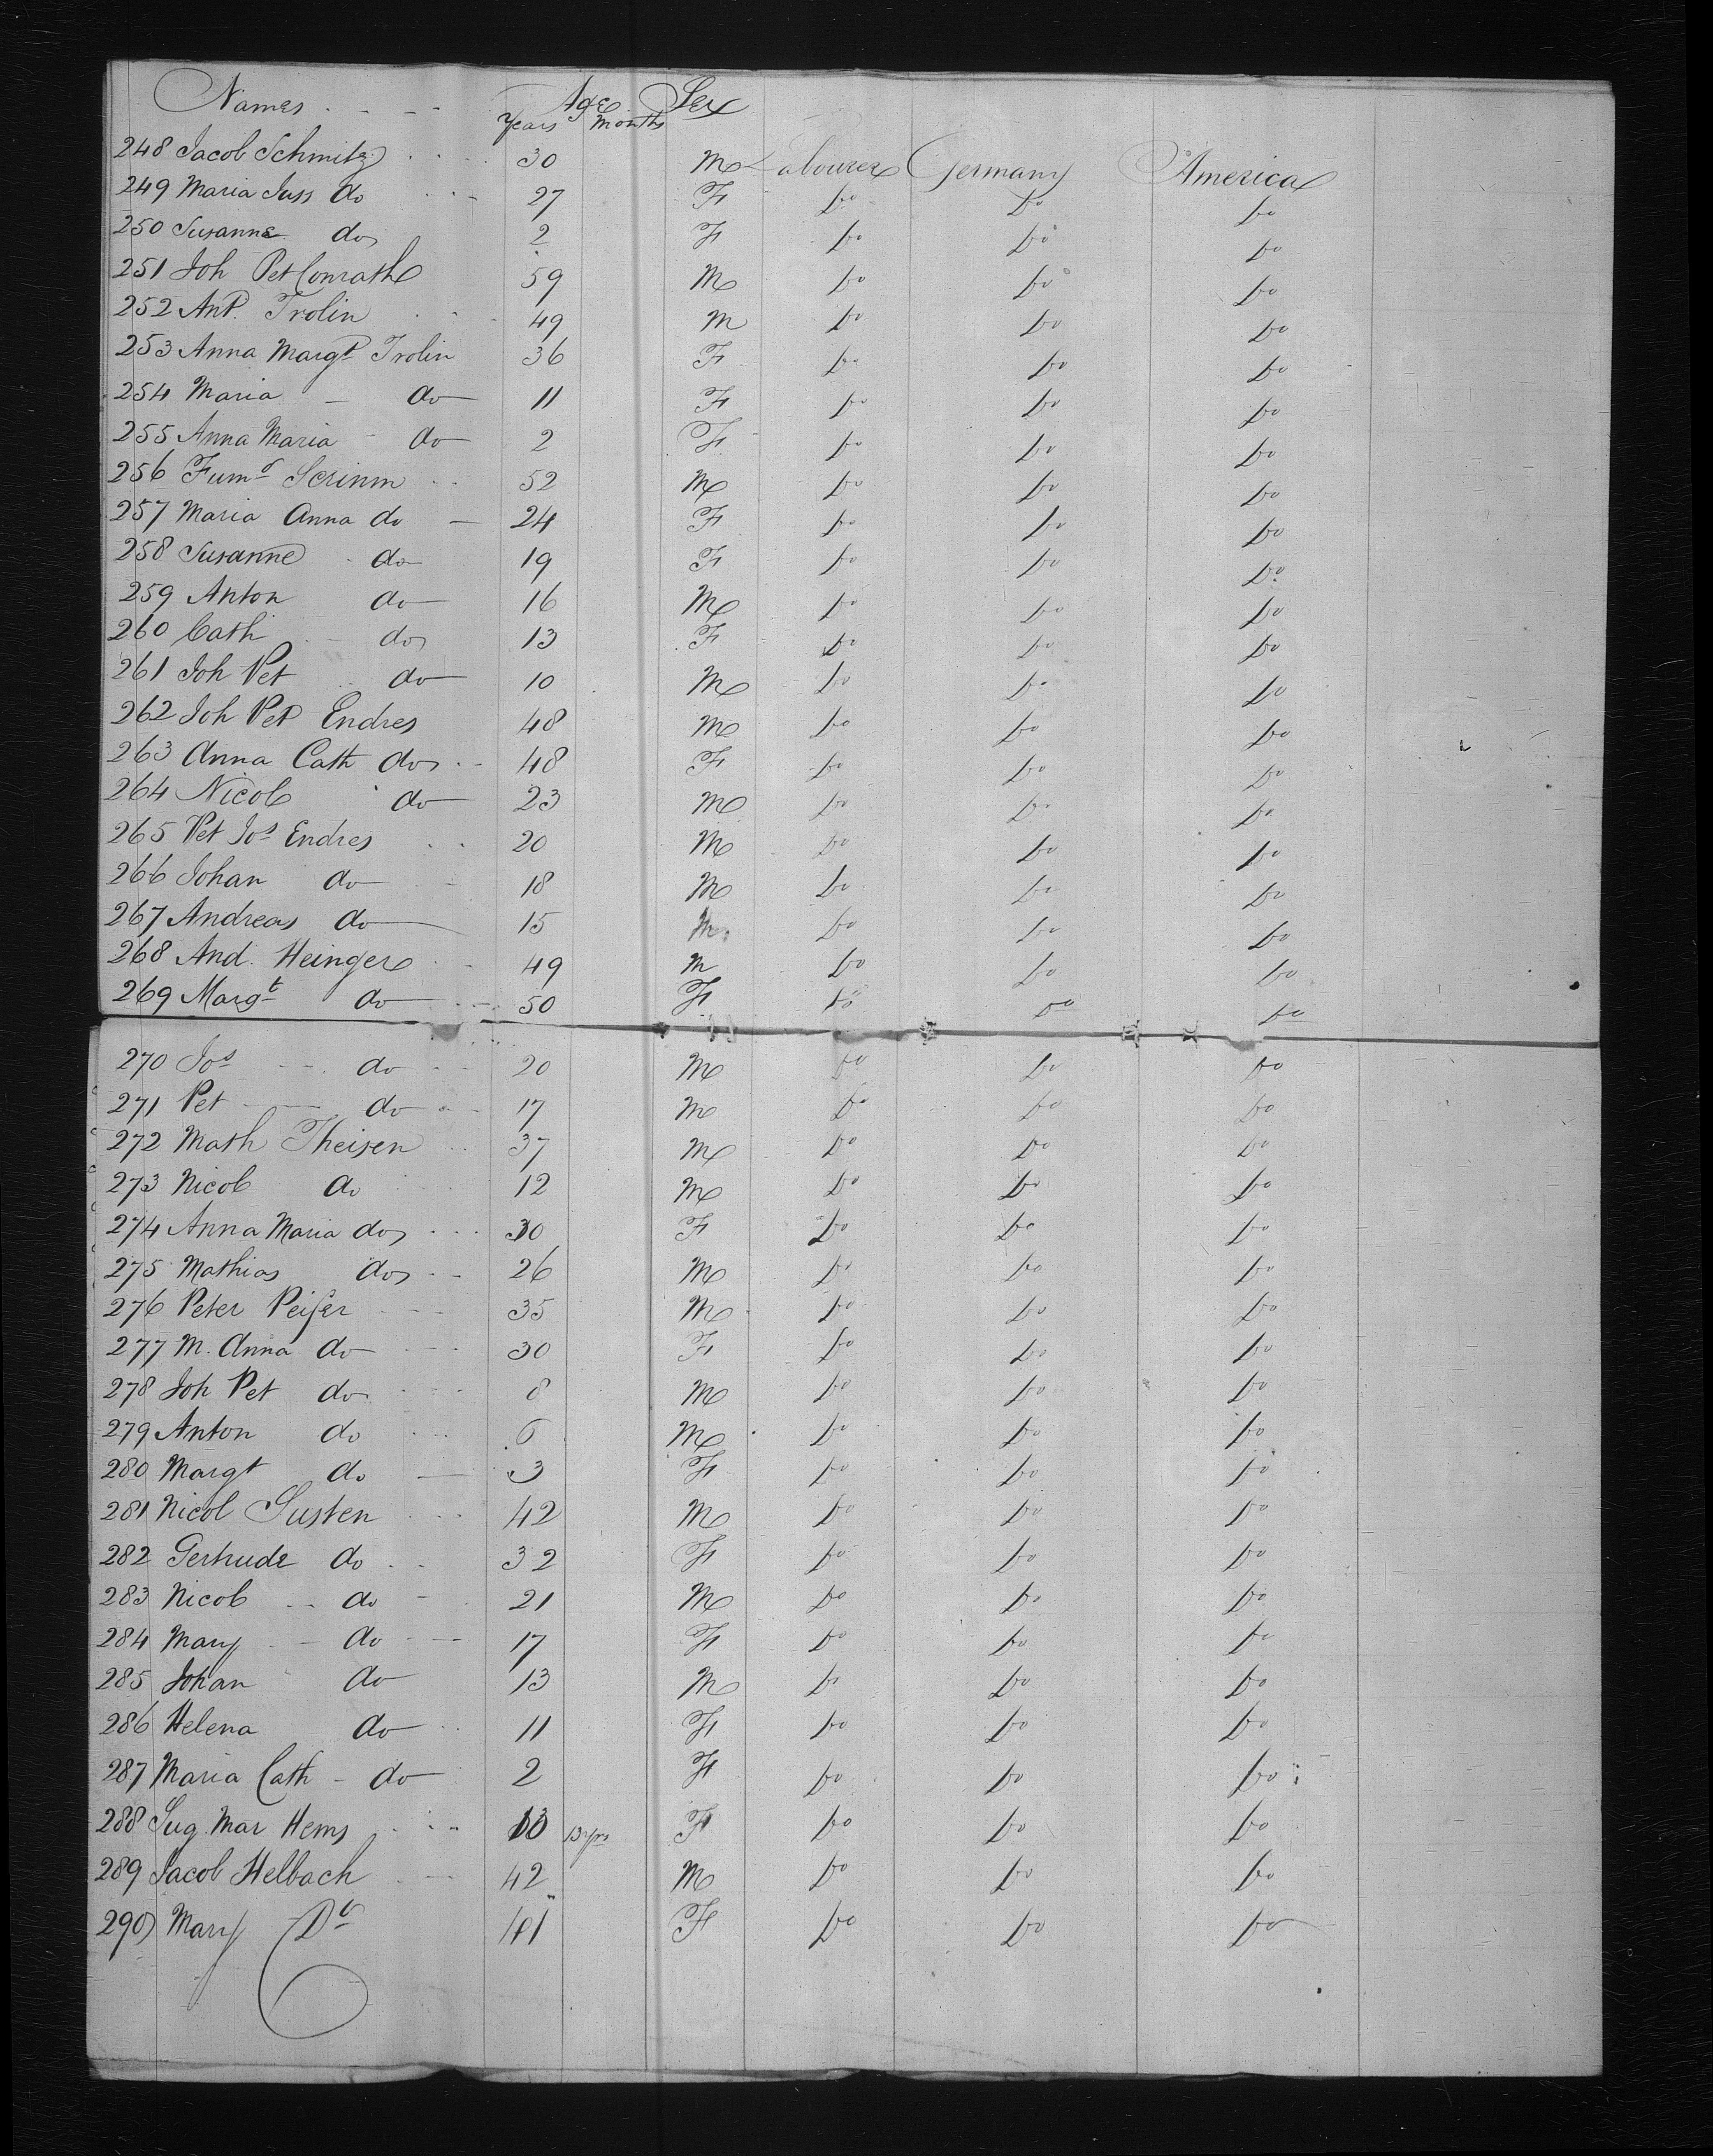 Names Age Sex
Years Months
248 Jacob Schmitz 30 M Labourer Germany America
249 Maria Juss do 27 F Do Do Do
250 Susanne do 2 F Do Do Do
251 Joh Pet Conrath 59 M Do Do Do
252 Ant. Trolin 49 M Do Do Do
253 Anna Margt Trolin 36 F Do Do Do
254 Maria do 11 F Do Do Do
255 Anna Maria do 2 F Do Do Do
256 Scrinm 52 M Do Do Do
257 Maria Anna do 24 F Do Do Do
258 Susanne do 19 F Do Do Do
259 Anton do 16 M Do Do Do
260 Cath do 13 F Do Do Do
261 Joh Pet do 10 M Do Do Do
262 Joh Pet Endres 48 M Do Do Do
263 Anna Cath do 48 F Do Do Do
264 Nicol do 23 M Do Do Do
265 Pet Jos Endres 20 M Do Do Do
266 Johan do 18 M Do Do Do
267 Andreas do 15 M Do Do Do
268 And. Heinger 49 M Do Do Do
269 Margt do 50 F Do Do Do
270 Jos do 20 M Do Do Do
271 Pet do 17 M Do Do Do
272 Math Theisen 37 M Do Do Do
273 Nicol do 12 M Do Do Do
274 Anna Maria do 30 F Do Do Do
275 Mathias do 26 M Do Do Do
276 Peter Peifer 35 M Do Do Do
277 M. Anna do 30 F Do Do Do
278 Joh Pet do 8 M Do Do Do
279 Anton do 6 M Do Do Do
280 Margt do 3 F Do Do Do
281 Nicol Susten 42 M Do Do Do
282 Gertrude do 32 F Do Do Do
283 Nicol do 21 M Do Do Do
284 Mary do 17 F Do Do Do
285 Johan do 13 M Do Do Do
286 Helena do 11 F Do Do Do
287 Maria Cath do 2 F Do Do Do
288 Mar Hems 13 yrs F Do Do Do
289 Jacob Helbach 42 M Do Do Do
290 Mary Do 41 F Do Do Do